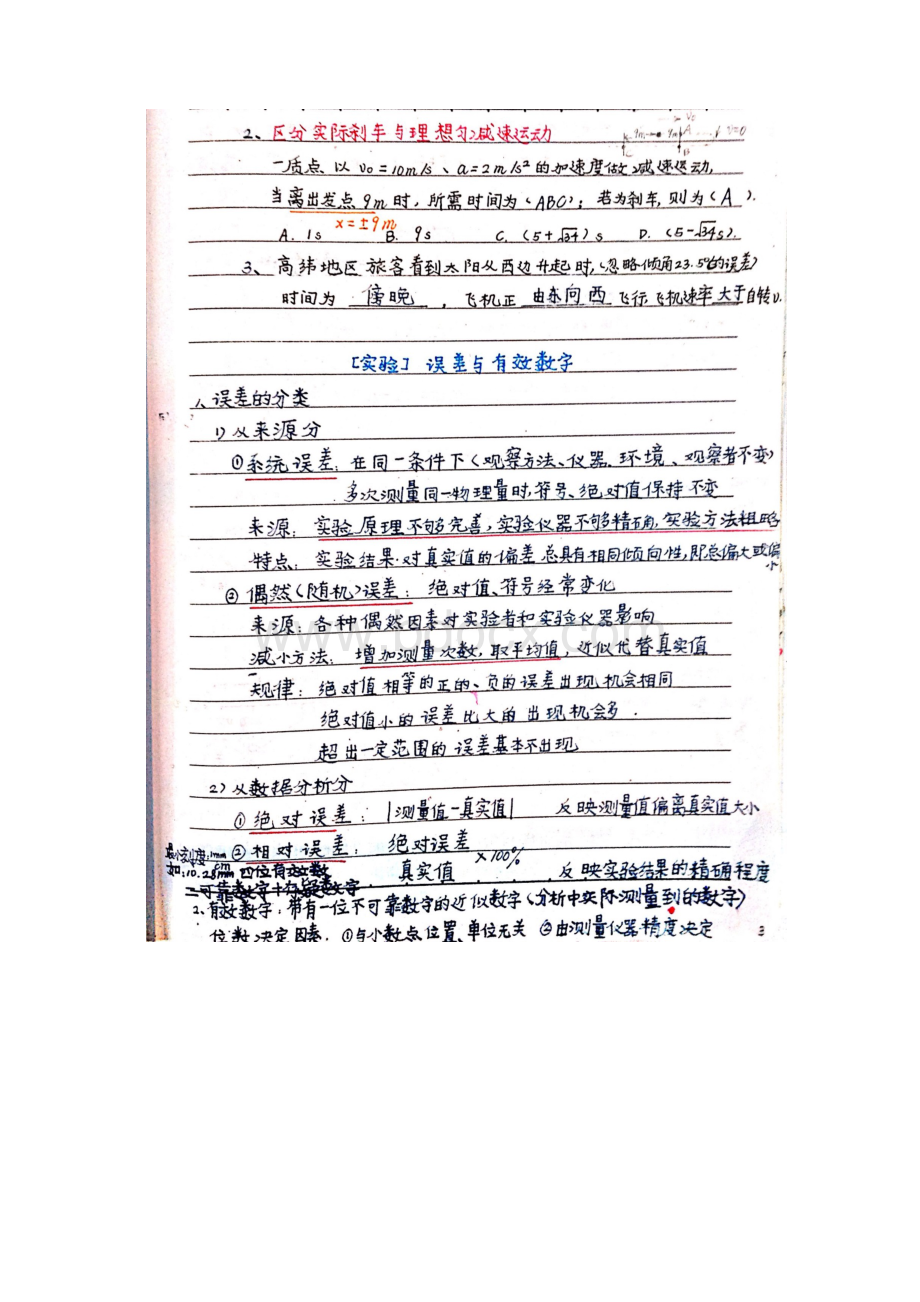 2、区分实际刹车与理想匀减速运动
V₀
9m 9m A V=0
B
一质点以 v₀=10m/s、a=2m/s²的加速度做减速运动,
当离出发点9m时,所需时间为(ABC);若为刹车,则为(A).
x=±9m
A. 1s B. 9s C. (5+√34)s D. (5-√34s).
3、高纬地区旅客看到太阳从西边升起时,(忽略倾角23.5°的误差)
时间为 傍晚 ,飞机正 由东向西 飞行,飞机速率大于自转v.
[实验] 误差与有效数字
1、误差的分类
1)从来源分
①系统误差:在同一条件下(观察方法、仪器、环境、观察者不变)
多次测量同一物理量时,符号、绝对值保持不变
来源:实验原理不够完善,实验仪器不够精确,实验方法粗略
特点:实验结果对真实值的偏差总具有相同倾向性,即总偏大或偏小
②偶然(随机)误差:绝对值、符号经常变化
来源:各种偶然因素对实验者和实验仪器影响
www.bdocx.com
减小方法:增加测量次数,取平均值,近似代替真实值
规律:绝对值相等的正的、负的误差出现机会相同
绝对值小的误差比大的出现机会多.
超出一定范围的误差基本不出现
2)从数据分析分
①绝对误差:|测量值-真实值| 反映测量值偏离真实值大小
②相对误差:绝对误差
真实值 ×100%, 反映实验结果的精确程度
最小刻度:1mm
如:10.28cm 四位有效数
=可靠数字+存疑数字
2、有效数字:带有一位不可靠数字的近似数字(分析中实际测量到的数字)
位数决定因素:①与小数点位置、单位无关 ②由测量仪器精度决定
3